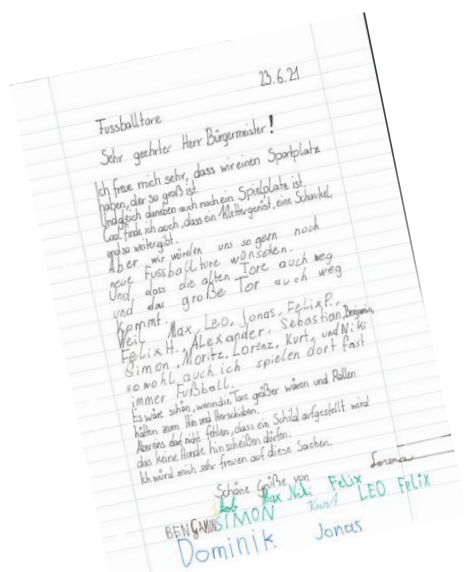 23.6.21
Fussballtore
Sehr geehrter Herr Bürgermeister!
Ich freue mich sehr, dass wir einen Sportplatz
haben, der so groß ist.
Und gleich daneben auch noch ein Spielplatz ist.
Cool finde ich auch, dass ein Klettergerüst, eine Schaukel,
und so weiter gibt.
Aber wir würden uns so gern noch
neue Fussballtore wünschen.
Und dass die alten Tore auch weg
und das große Tor auch weg
kommt.
Weil Max, Leo, Jonas, Felix P.,
Felix H., Alexander, Sebastian, Benjamin,
Simon, Moritz, Lorenz, Kurt, und Niki
sowohl auch ich spielen dort fast
immer Fußball.
Es wäre schön, wenn die Tore größer wären und Rollen
hätten zum Hin und Herschieben.
darf nicht fehlen, dass ein Schild aufgestellt wird
das keine Hunde hinscheißen dürfen.
Ich würd mich sehr freuen auf diese Sachen.
Schöne Grüße von
Lorenz
Max Niki Felix
BENJAMIN SIMON Kurt LEO Felix
Dominik Jonas